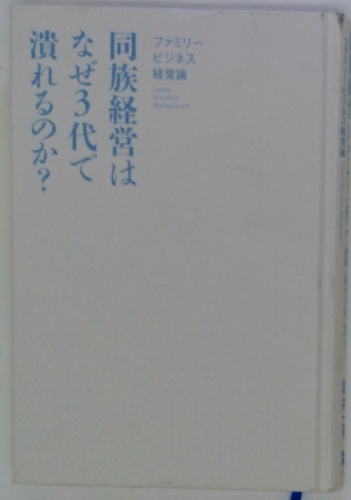 同族経営は
なぜ3代で
潰れるのか?
ファミリー
ビジネス
経営論
Family
Business
Management